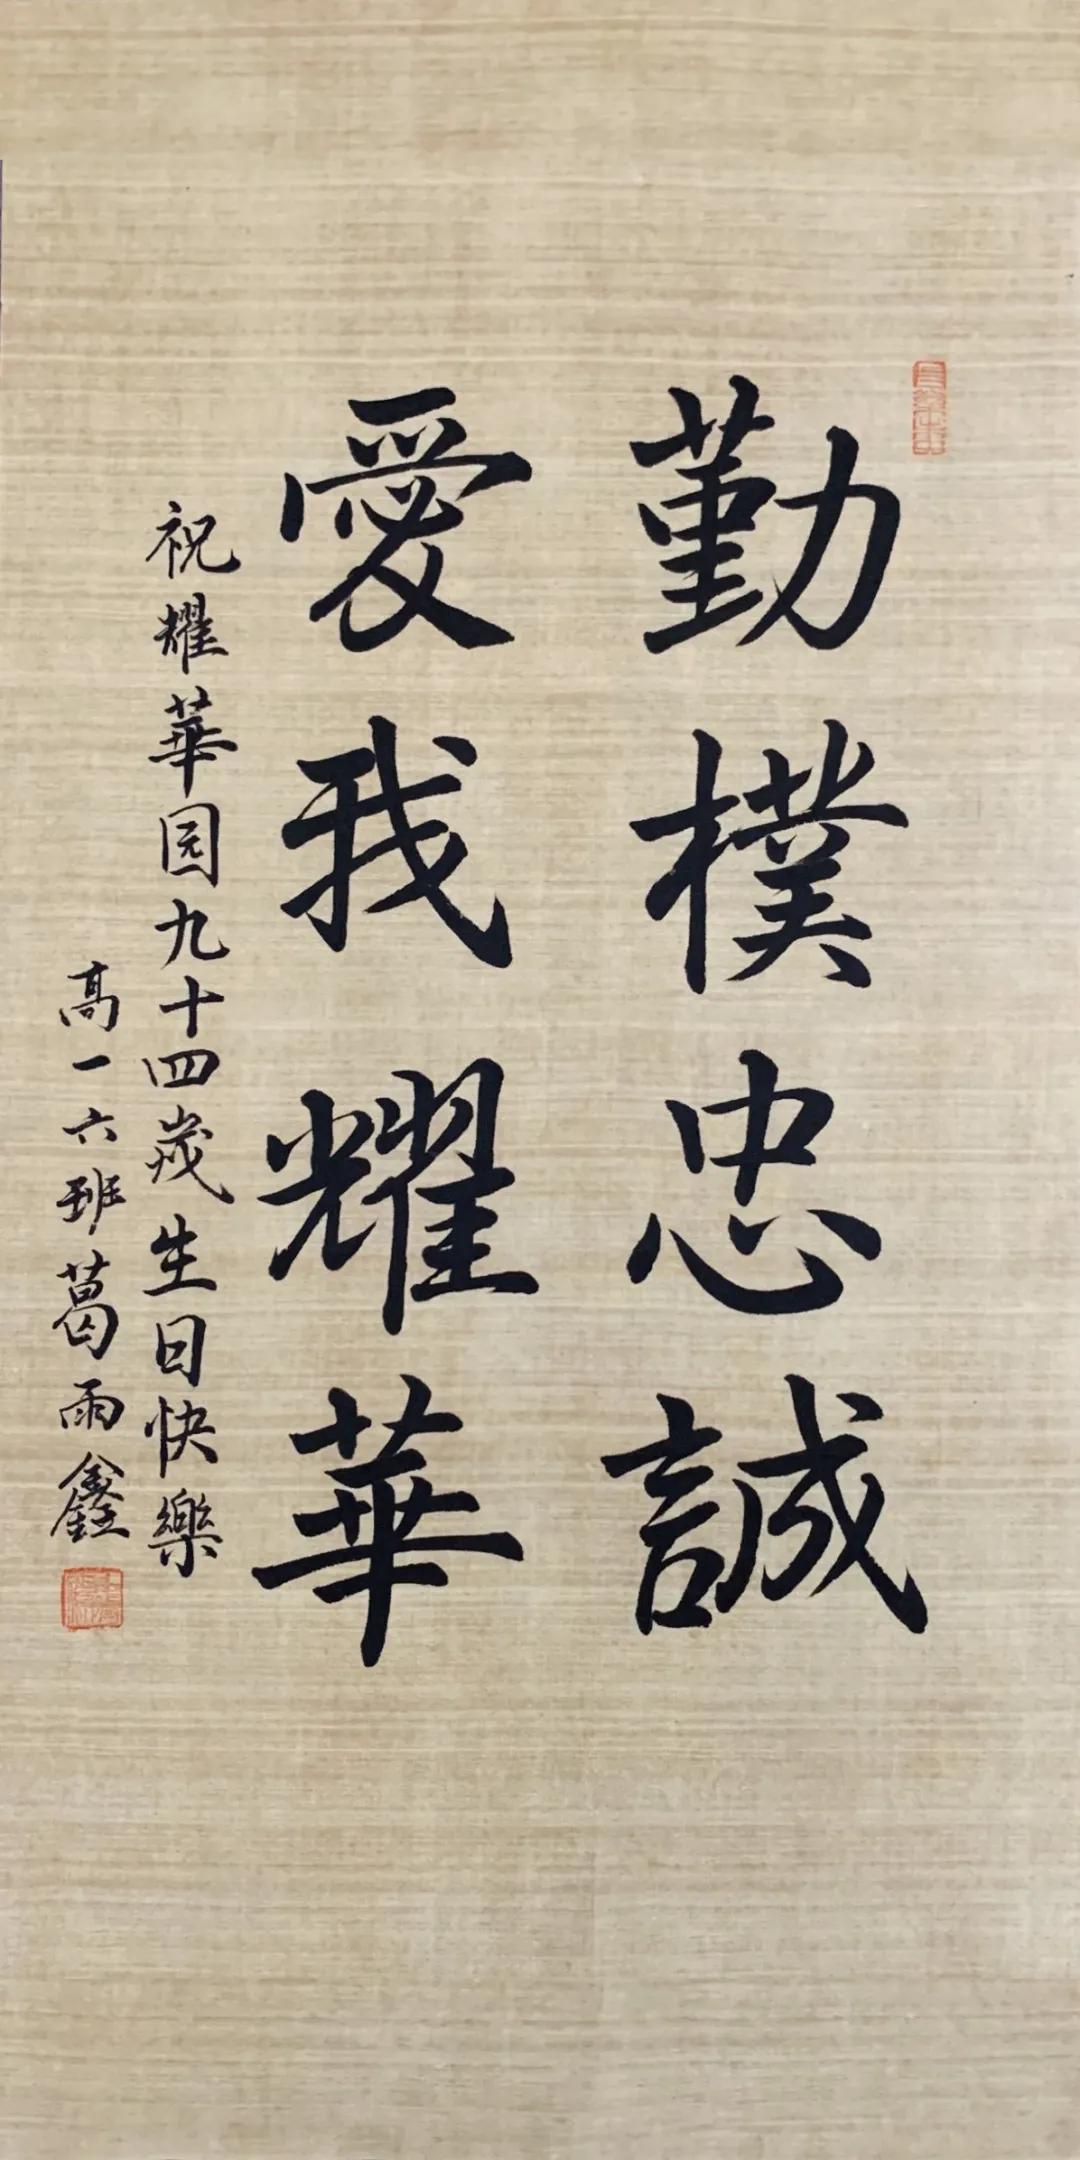 勤樸忠誠
愛我耀華
祝耀華园九十四歲生日快樂
高一六班葛雨鑫